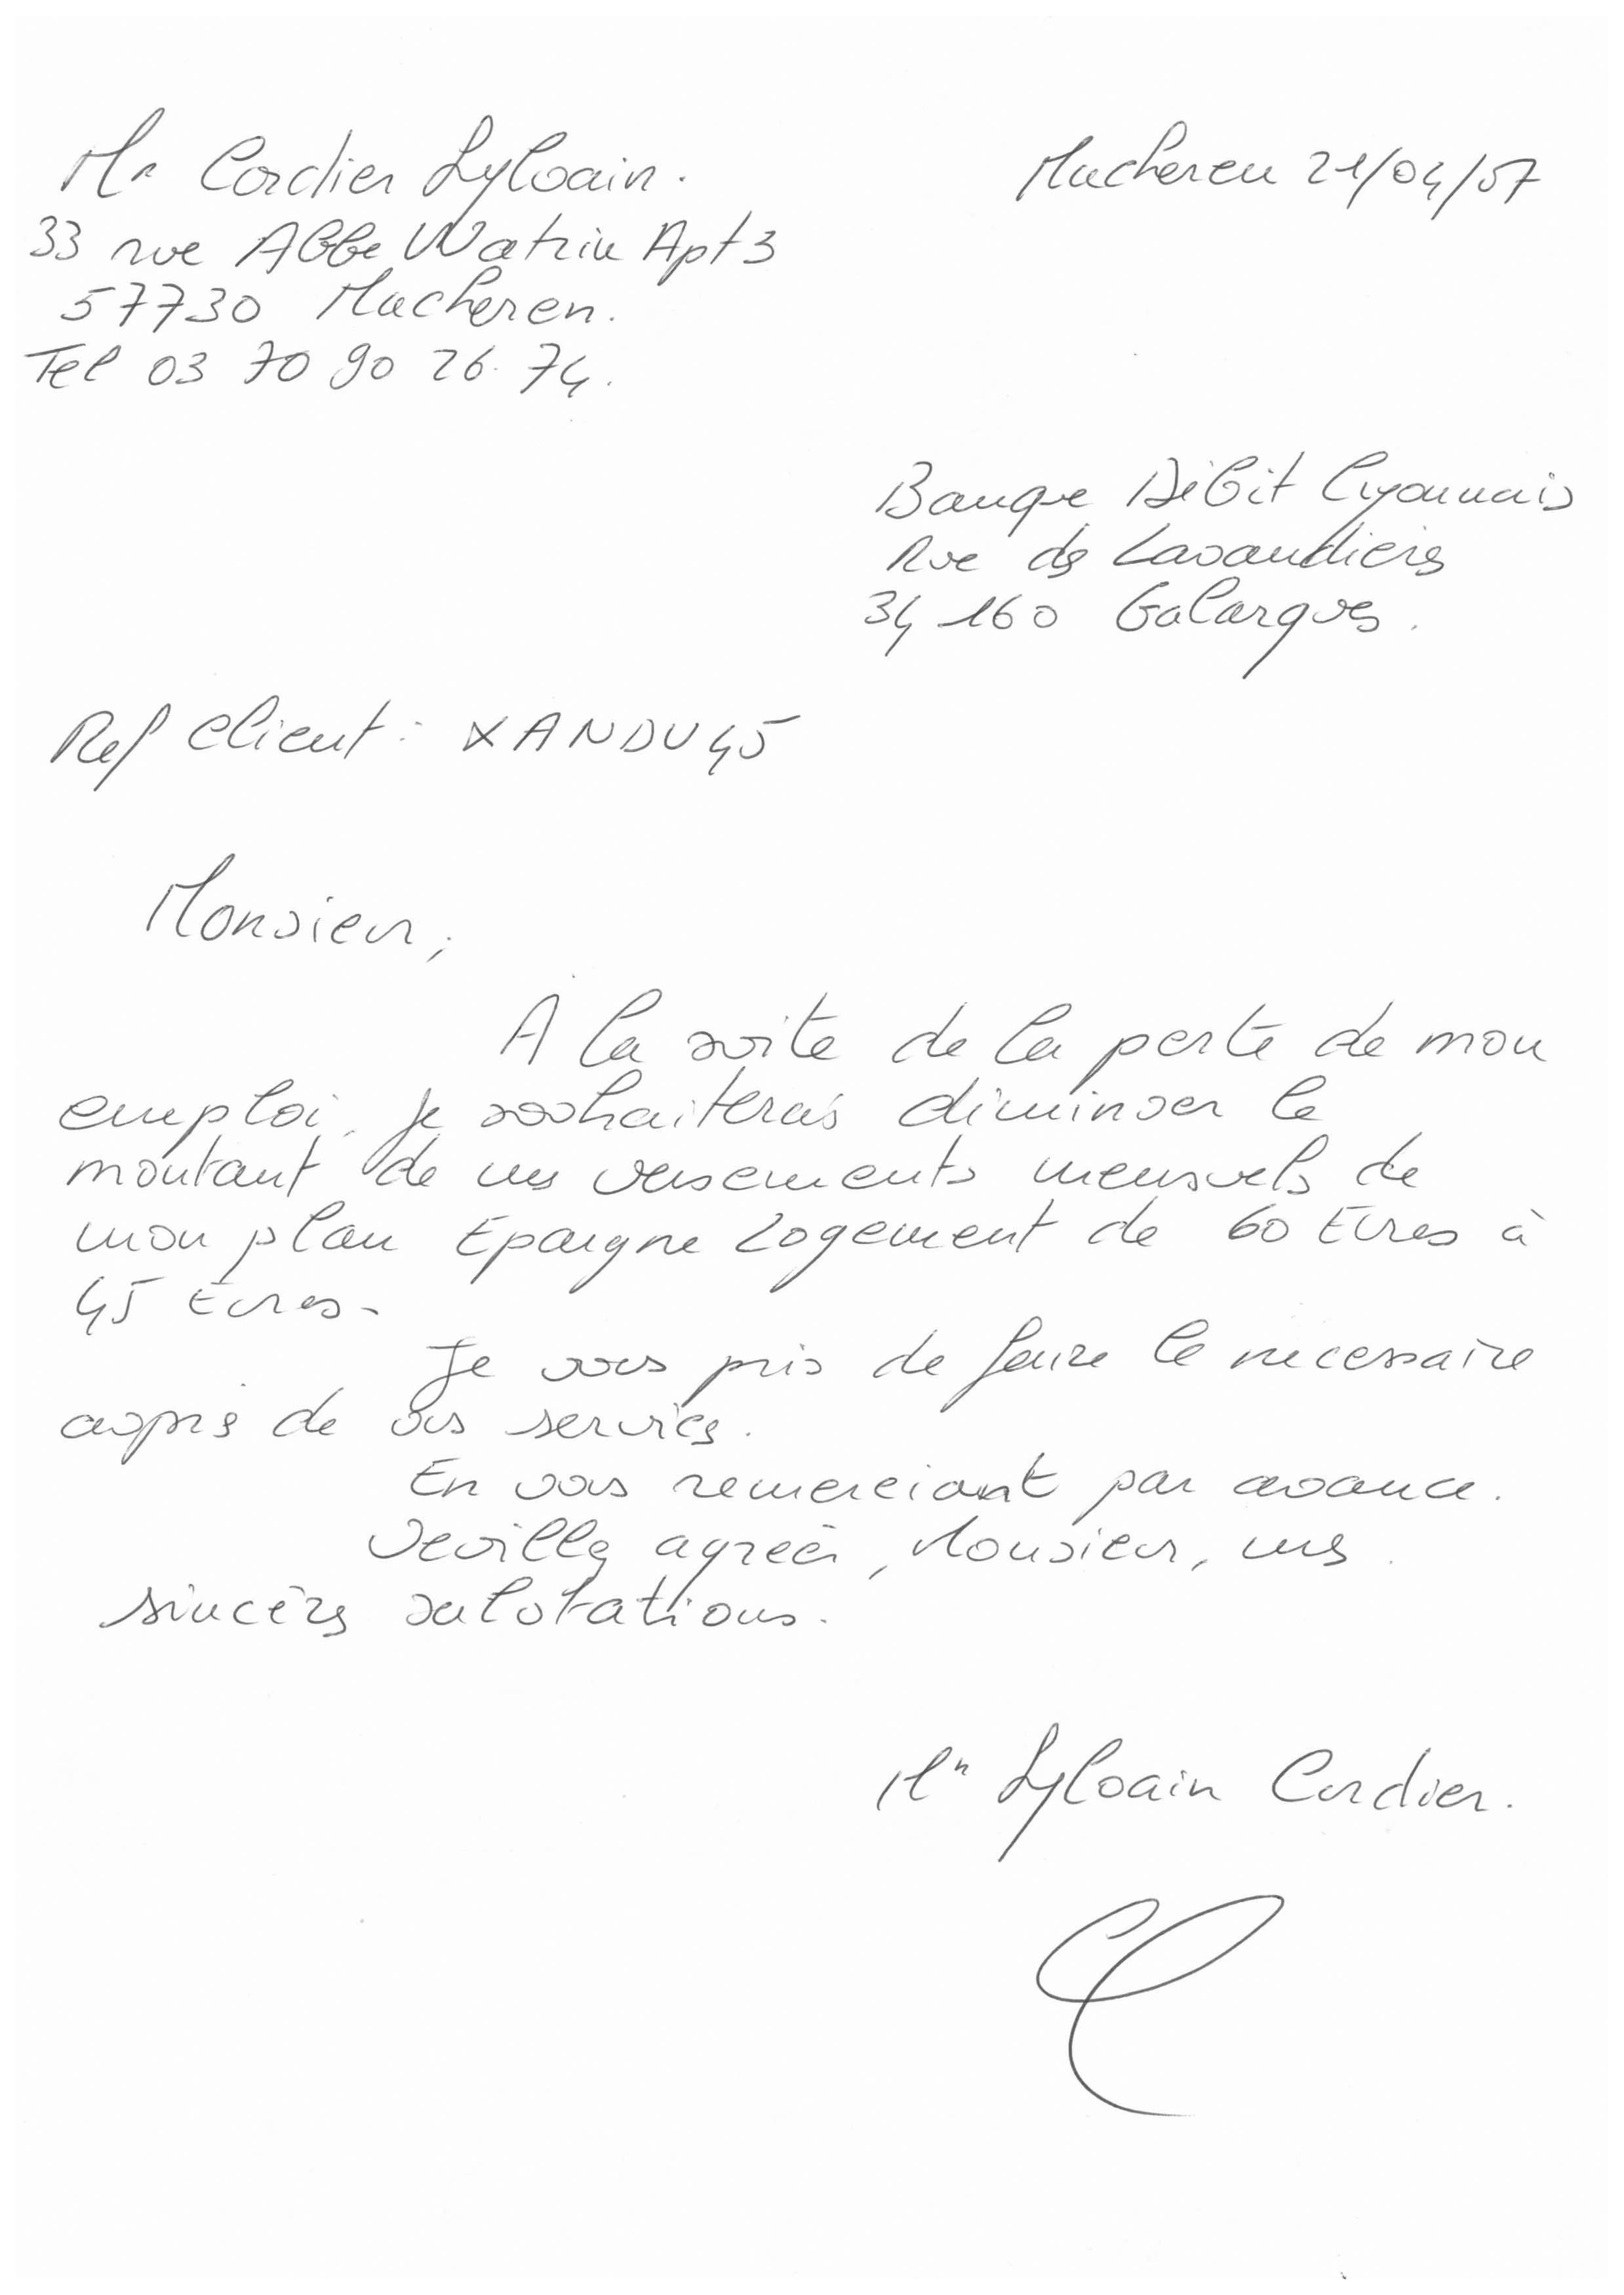 Mr Cordier Sylvain.
Macheren 21/04/07
33 rue Abbe Watrin Apt 3
57730 Macheren.
Tel 03 70 90 26 74.
Banque Débit Lyonnais
Rue des Lavandières
34 160 Galargues.
Ref client : XANDU45
Monsieur,
A la suite de la perte de mon
emploi, je souhaiterais diminuer le
montant de mes versements mensuels de
mon plan Epargne Logement de 60 Euros à
45 Euros.
Je vous pris de faire le necessaire
auprès de vos services.
En vous remerciant par avance.
Veuillez agréer, Monsieur, mes
sincères salutations.
Mr Sylvain Cordier.